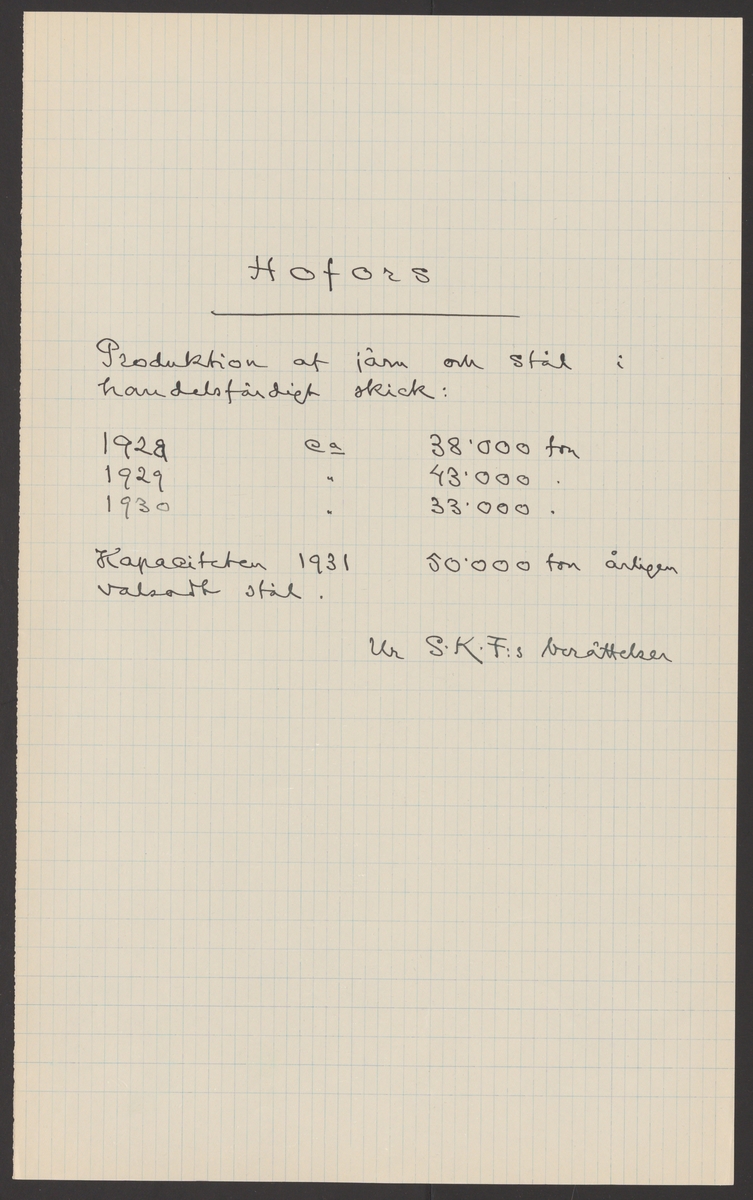 Hofors
Produktion af järn och stål i
handelsfärdigt skick:
1928 ca 38'000 ton
1929 " 43'000 .
1930 " 33'000 .
Kapaciteten 1931 50'000 ton årligen
valsadt stål.
Ur S.K.F:s berättelser